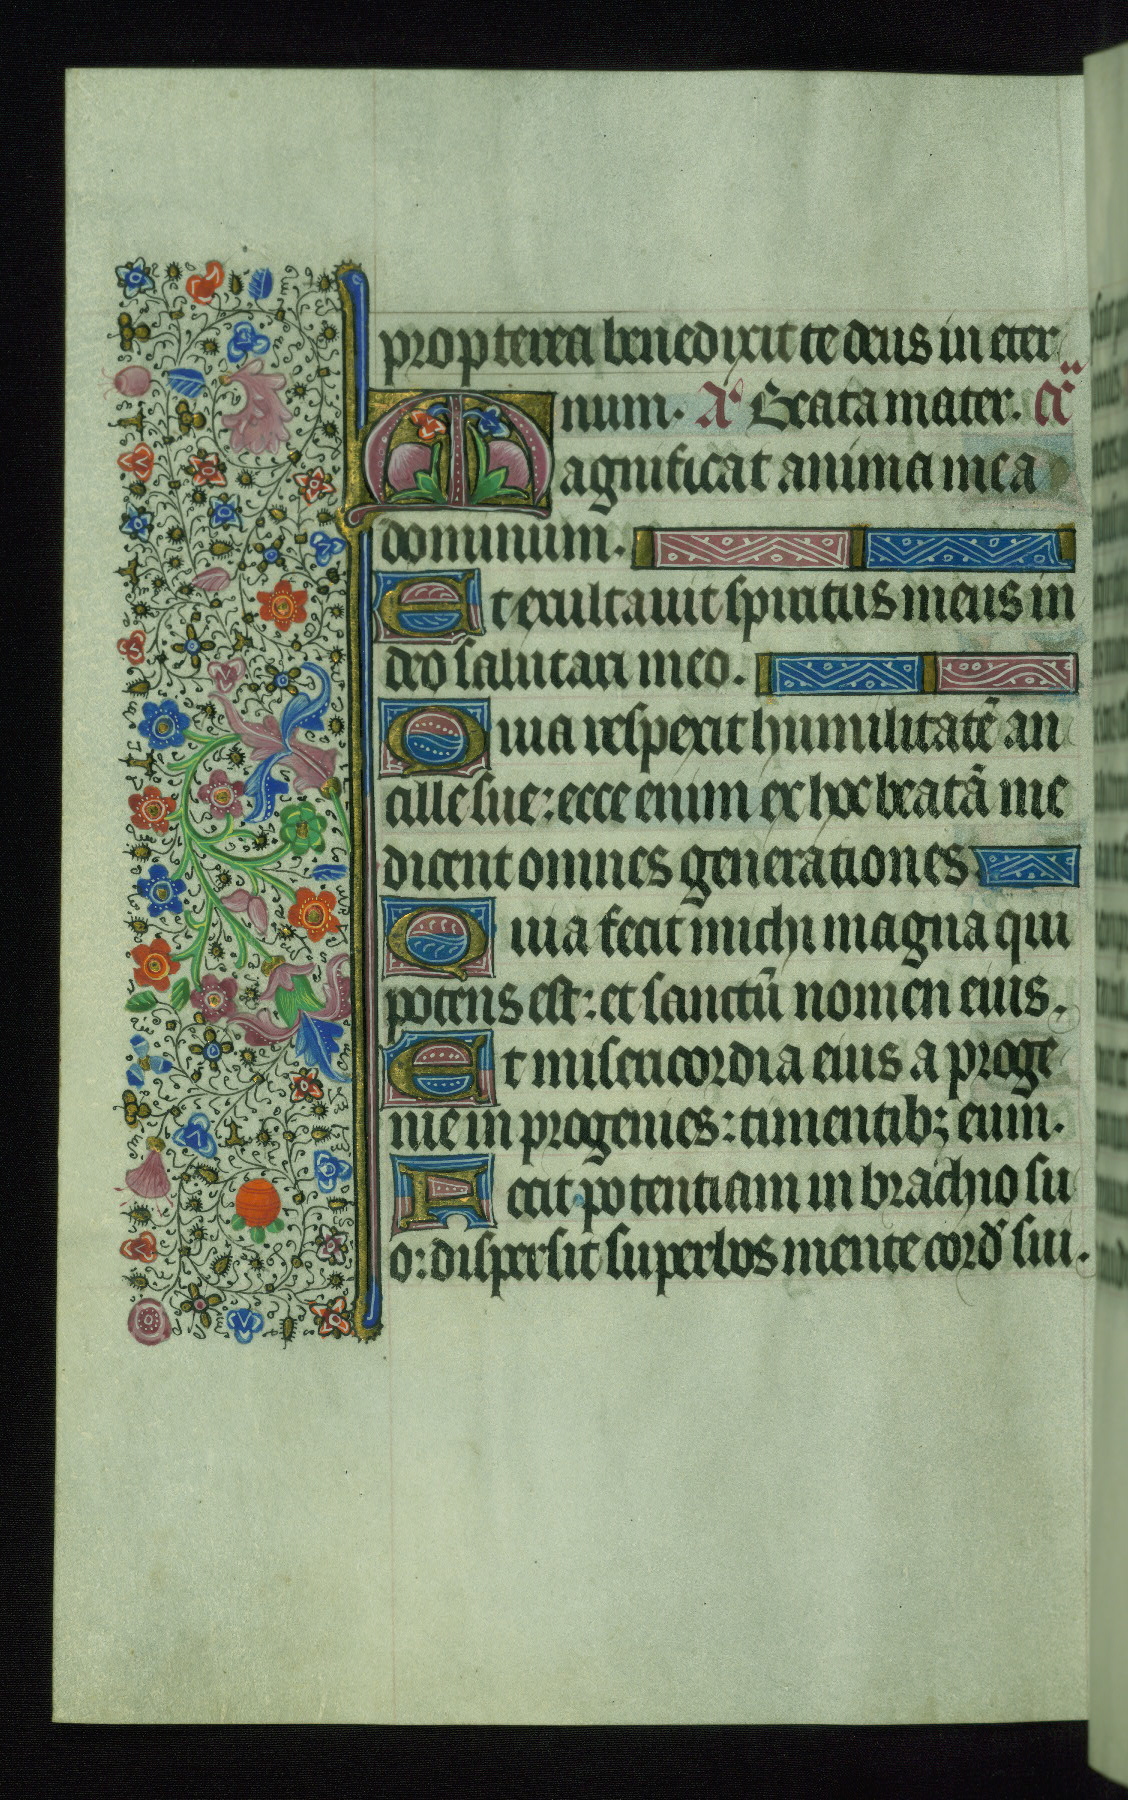 propterea benedixit te deus in eter
num. A͛ Beata mater. c͛a
Magnificat anima mea
dominum.
Et exultauit spiritus meus in
deo salutari meo.
Quia respexit humilitatē an
cille sue: ecce enim ex hoc beatā me
dicent omnes generationes.
Quia fecit michi magna qui
potens est: et sanctū nomen eius.
Et misericordia eius a proge
nie in progenies: timentibꝫ eum.
Fecit potentiam in brachio su
o: dispersit superbos mente cord̉ sui.